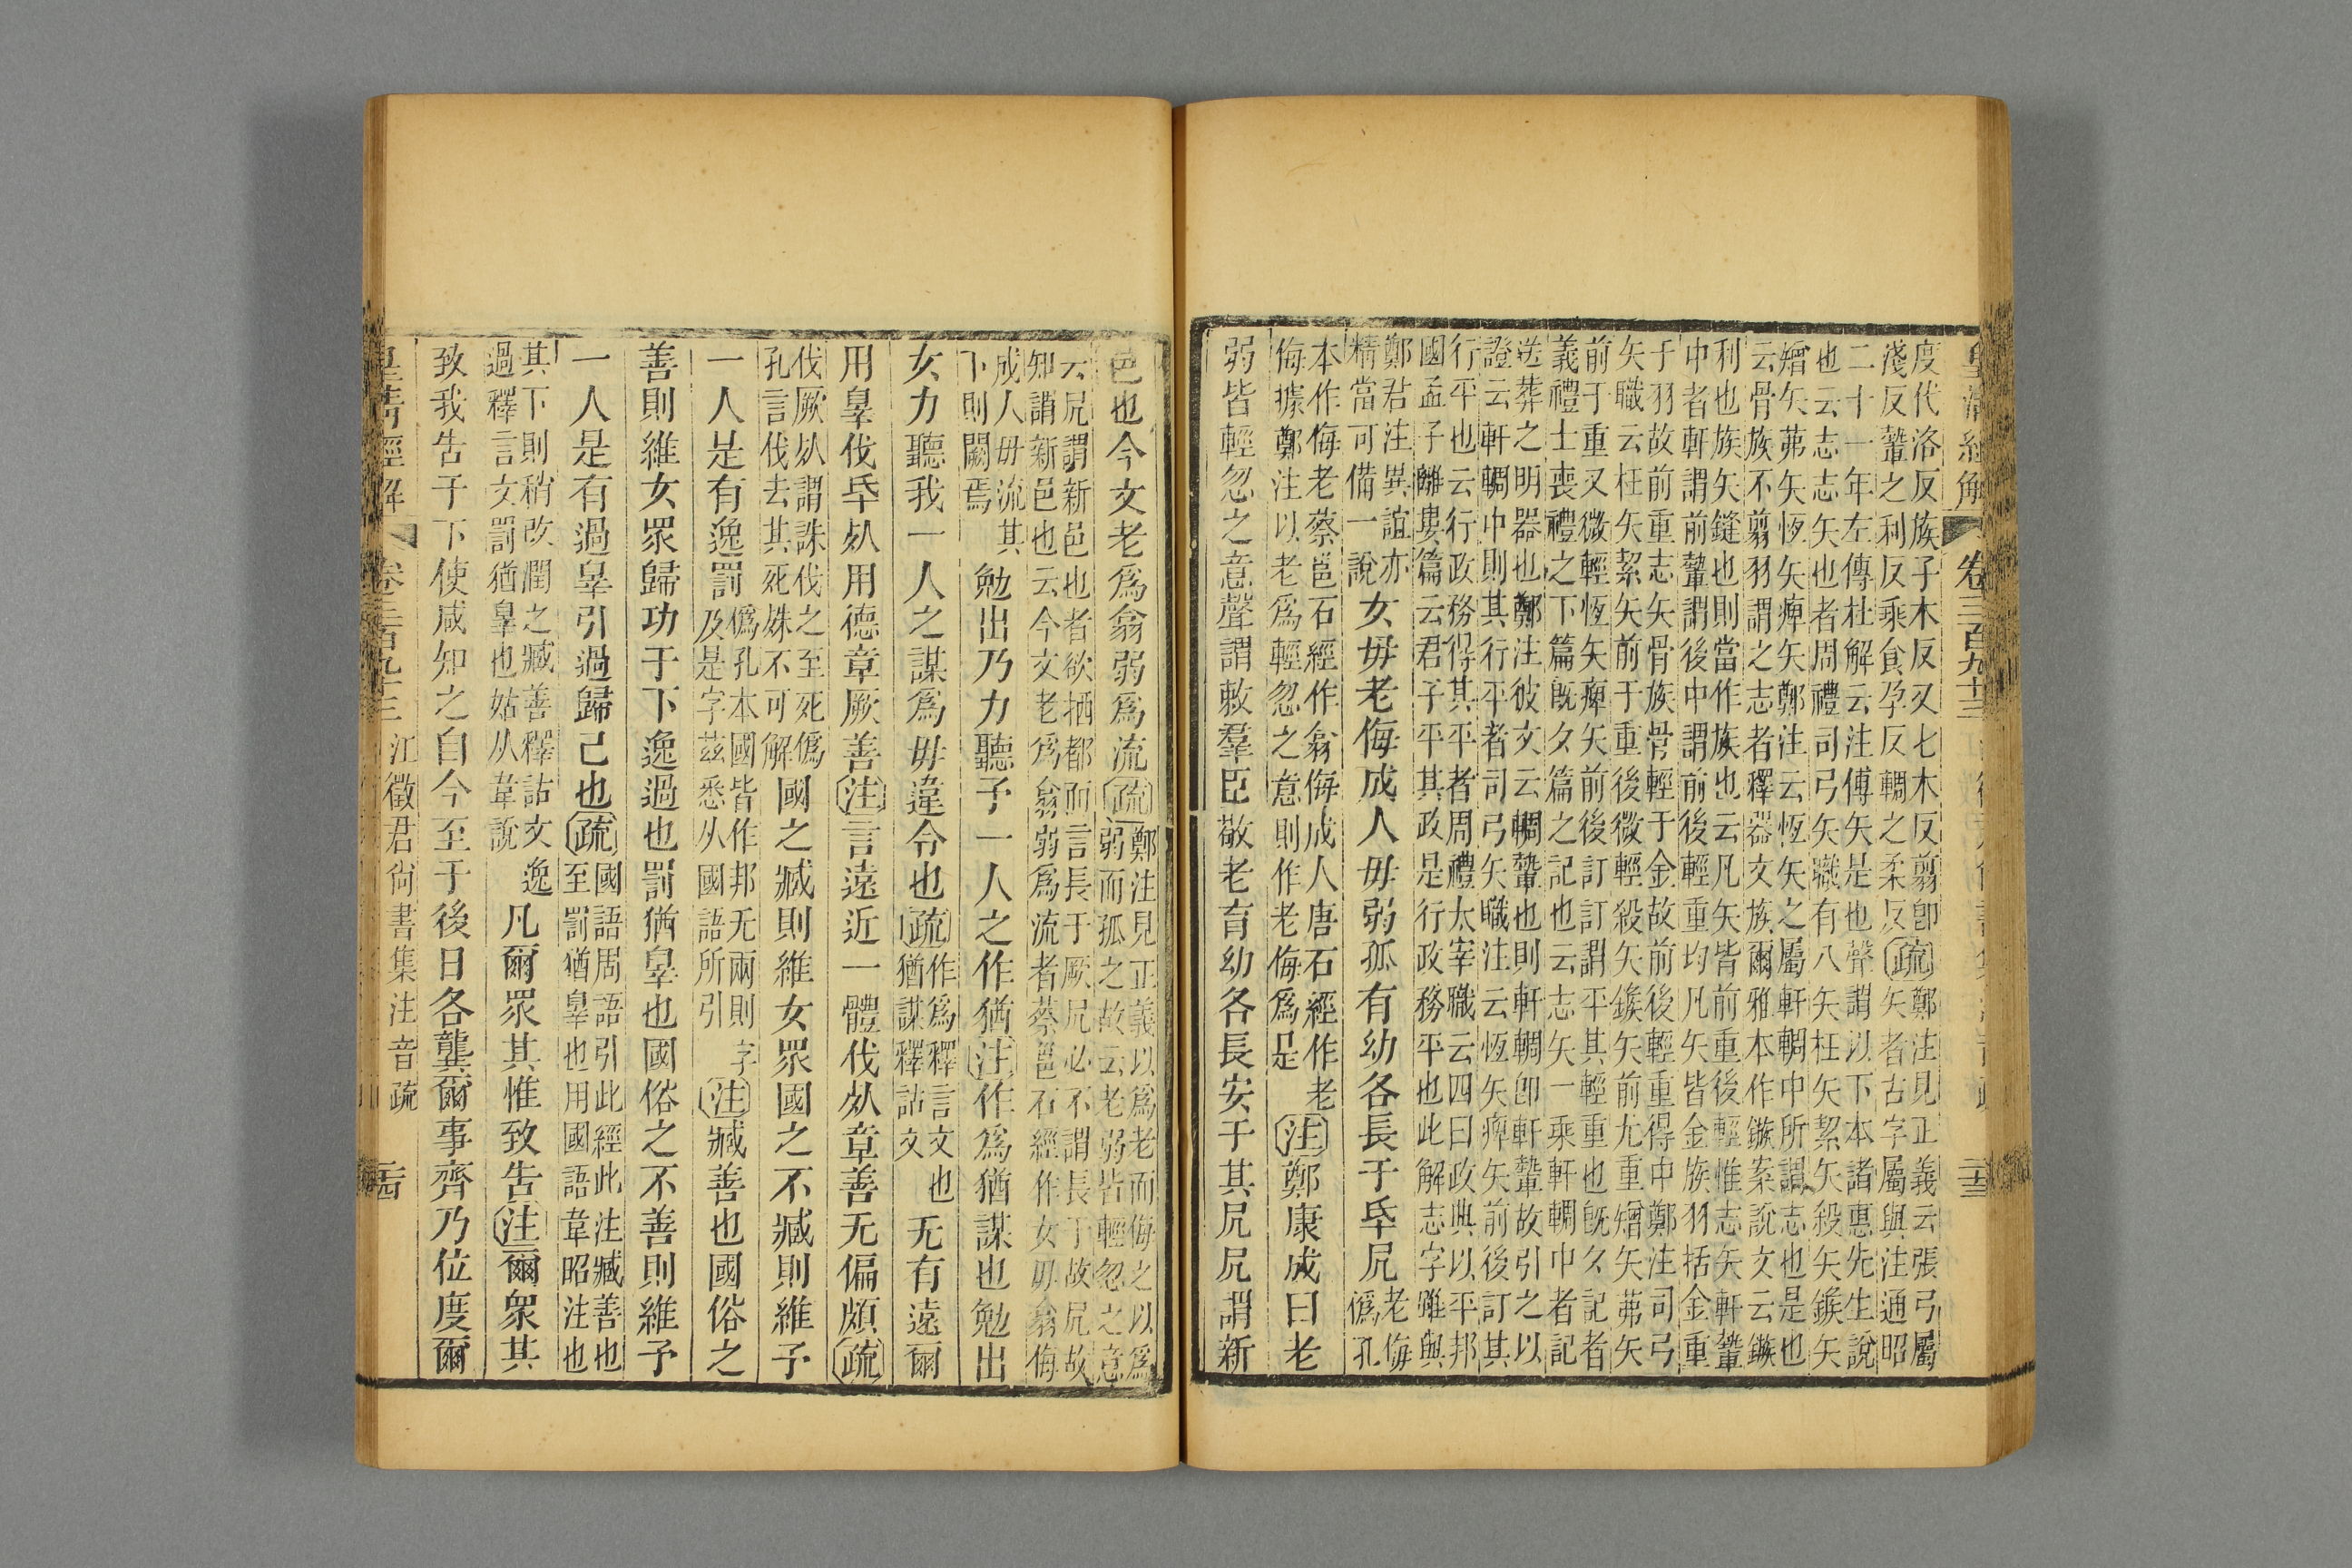 皇清經解 卷三百九十三 二十三
度代洛反族子木反又七木反翦卽
淺反鞏之利反乘食孕反輖之柔反疏鄭注見正義云張弓屬
矢者古字屬與注通昭
二十一年左傳杜解云注傅矢是也聲謂以下本諸惠先生說
也云志志矢也者周禮司弓矢職有八矢枉矢絜矢殺矢鍭矢
矰矢茀矢恆矢痺矢鄭注云恆矢之屬軒輖中所謂志也是也
云骨族不翦羽謂之志者釋器文族爾雅本作鏃案說文云鏃
利也族矢鏠也則當作族也云凡矢皆前重後輕惟志矢軒鞏
中者軒謂前鞏謂後中謂前後輕重均凡矢皆金族羽括金重
于羽故前重志矢骨族骨輕于金故前後輕重得中鄭注司弓
矢職云枉矢絜矢前于重後微輕殺矢鍭矢前尤重矰矢茀矢
前于重又微輕恆矢痺矢前後訂訂謂平其輕重也旣夕記者
義禮士喪禮之下篇旣夕篇之記也云志矢一乘軒輖中者記
送葬之明器也鄭注彼文云輖鞏也則軒輖卽軒鞏故引之以
證云軒輖中則其行平者司弓矢職注云恆矢痺矢前後訂其
行平也云行政務得其平者周禮太宰職云四曰政典以平邦
國孟子離婁篇云君子平其政是行政務平也此解志字雖與
鄭君注異誼亦
精當可備一說女毋老侮成人毋弱孤有幼各長于氒凥老侮
僞孔
本作侮老蔡邕石經作翕侮成人唐石經作老
侮據鄭注以老爲輕忽之意則作老侮爲是注鄭康成曰老
弱皆輕忽之意聲謂敕羣臣敬老育幼各長安于其凥凥謂新
邑也今文老爲翕弱爲流疏鄭注見正義以爲老而侮之以爲
弱而孤之故云老弱皆輕忽之意
云凥謂新邑也者欲栖都而言長于厥凥必不謂長于故凥故
知謂新邑也云今文老爲翕弱爲流者蔡邕石經作女毋翕侮
成人毋流其
下則闕焉勉出乃力聽予一人之作猶注作爲猶謀也勉出
女力聽我一人之謀爲毋違令也疏作爲釋言文也
猶謀釋詁文无有遠爾
用辠伐氒㱙用德章厥善注言遠近一體伐㱙章善无偏頗疏
伐厥㱙謂誅伐之至死僞
孔言伐去其死姝不可解國之臧則維女眾國之不臧則維予
一人是有逸罰僞孔本國皆作邦无兩則字
及是字茲悉从國語所引注臧善也國俗之
善則維女眾歸功于下逸過也罰猶辠也國俗之不善則維予
一人是有過辠引過歸己也疏國語周語引此經此注臧善也
至罰猶辠也用國語韋昭注也
其下則稍改潤之臧善釋詁文逸
過釋言文罰猶辠也姑从韋說凡爾眾其惟致告注爾眾其
致我告于下使咸知之自今至于後日各龔爾事齊乃位度爾
皇清經解 卷三百九十三 江徵君尙書集注音疏 二十四